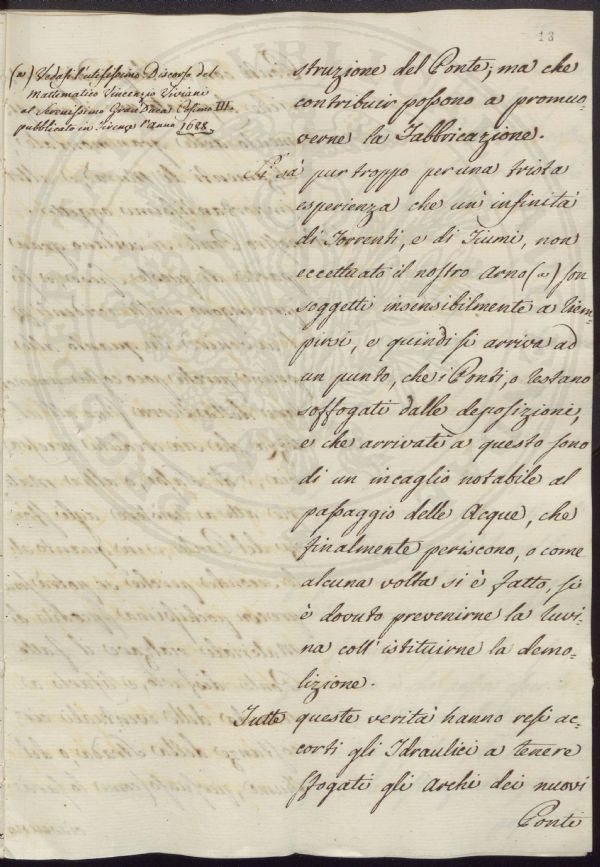 13
(a) Vedasi l'utilissimo Discorso del
Mattematico Vincenzio Viviani
al Serenissimo Gran Duca Cosimo III.
pubblicato in Firenze l'anno 1688
struzione del Ponte; ma che
contribuir possono a promuo-
verne la Fabbricazione.
Si sà pur troppo per una trista
esperienza che un' infinità
di Torrenti, e di Fiumi, non
eccettuato il nostro Arno (a) son
soggetti insensibilmente a Riem-
pirsi, e quindi si arriva ad
un punto, che i Ponti, o restano
soffogati dalle deposizioni,
e che arrivati a questo sono
di un incaglio notabile al
passaggio delle Acque, che
finalmente periscono, o come
alcuna volta si è fatto, si
è dovuto prevenirne la Ruvi-
na coll' istituirne la demo-
lizione.
Tutte queste verità hanno resi ac-
corti gli Idraulici a tenere
sfogati gli Archi dei nuovi
Ponti